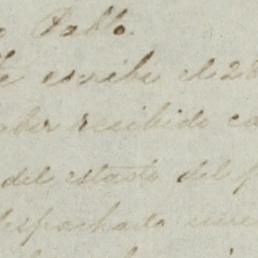 Pablo.
Te escribí el 28
haber recibido ca
del estado del p
despachado